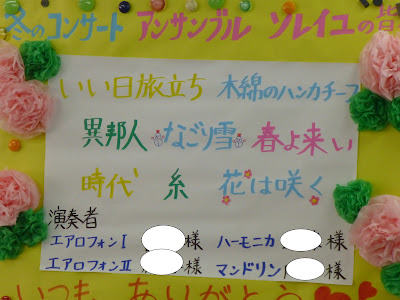 冬のコンサート アンサンブル ソレイユの皆
いい日旅立ち 木綿のハンカチーフ
異邦人 なごり雪 春よ来い
時代 糸 花は咲く
演奏者
エアロフォンⅠ 様 ハーモニカ 様
エアロフォンⅡ 様 マンドリン 様
いつも ありがとう